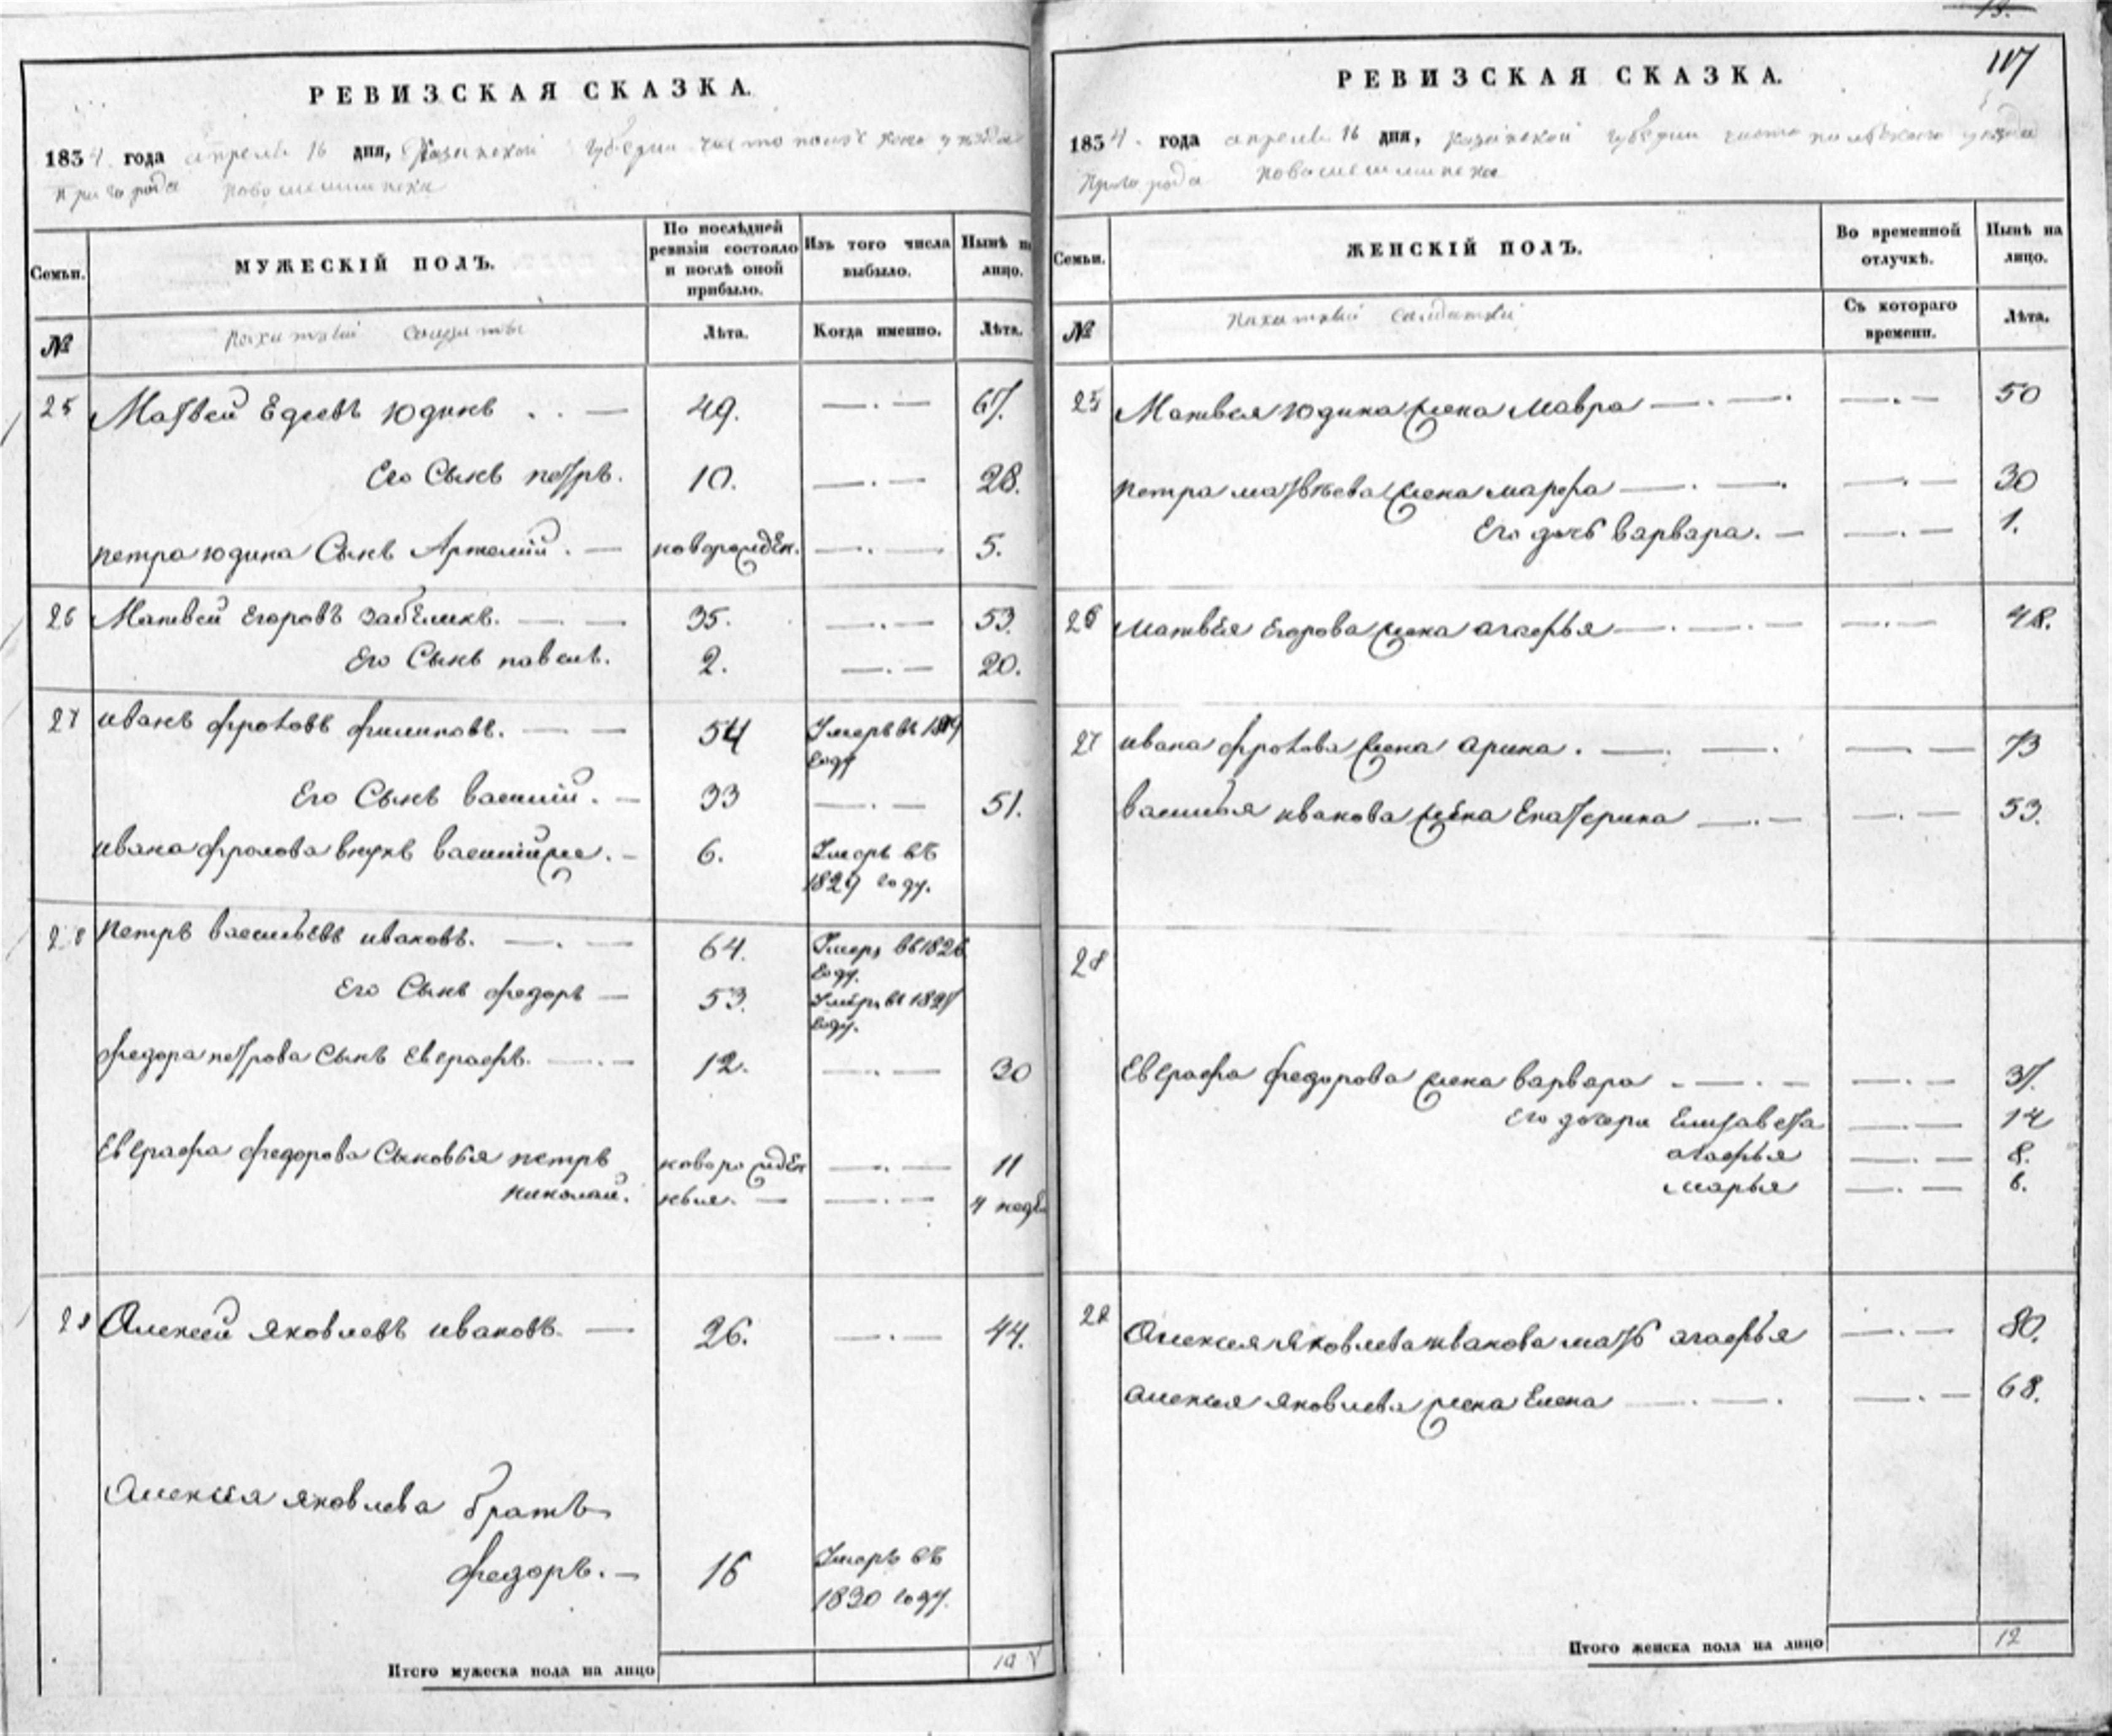 РЕВИЗСКАЯ СКАЗКА.
1834 года апреля 16 дня, Казанской губернии чистопольскаго уезда
пригорода новошешминска
Семьи. МУЖЕСКІЙ ПОЛЪ. По послѣдней ревизіи состояло и послѣ оной прибыло. Изъ того числа выбыло. Нынѣ на лицо.
№ пахатныи солдаты Лѣта. Когда именно. Лѣта.
25 Матвей Едеевъ юдинъ 49. 67.
Его Сынъ петръ. 10. 28.
петра юдина Сынъ Артемій. новорожден. 5.
26 Матвей Егоровъ забелинъ. 35. 53.
Его Сынъ павелъ. 2. 20.
27 иванъ фроловъ филиповъ. 54 Умеръ въ 1819 году
Его Сынъ василій. 33 51.
ивана фролова внукъ василій же. 6. Умеръ въ 1829 году.
28 петръ васильевъ ивановъ. 64. Умеръ въ 1826 году.
Его Сынъ федоръ 53. Умеръ въ 1827 году.
федора петрова Сынъ Евграфъ. 12. 30
Евграфа федорова Сыновья петръ новорожден 11
николай. ныя. 4 недел
29 Алексей яковлевъ ивановъ. 26. 44.
Алексея яковлева братъ
федоръ. 16 Умеръ въ 1830 году.
Итого мужеска пола на лицо 10
13.
117
РЕВИЗСКАЯ СКАЗКА.
1834. года апреля 16 дня, казанской губернии чистопольскаго уезда
пригорода новошешминска
Семьи. ЖЕНСКІЙ ПОЛЪ. Во временной отлучкѣ. Нынѣ на лицо.
№ пахатныи солдатки Съ котораго времени. Лѣта.
25 Матвея юдина жена мавра 50
петра матвѣева жена марфа 30
Его дочь варвара. 1.
26 матвея Егорова жена агафья 48.
27 ивана фролова жена арина. 73
василья иванова жена Екатерина 53.
28
Евграфа федорова жена варвара 37.
Его дочери Елизавета 14
агафья 8.
марья 6.
29 Алексея яковлева иванова мать агафья 80.
алексея яковлева жена Елена 68.
Итого женска пола на лицо 12